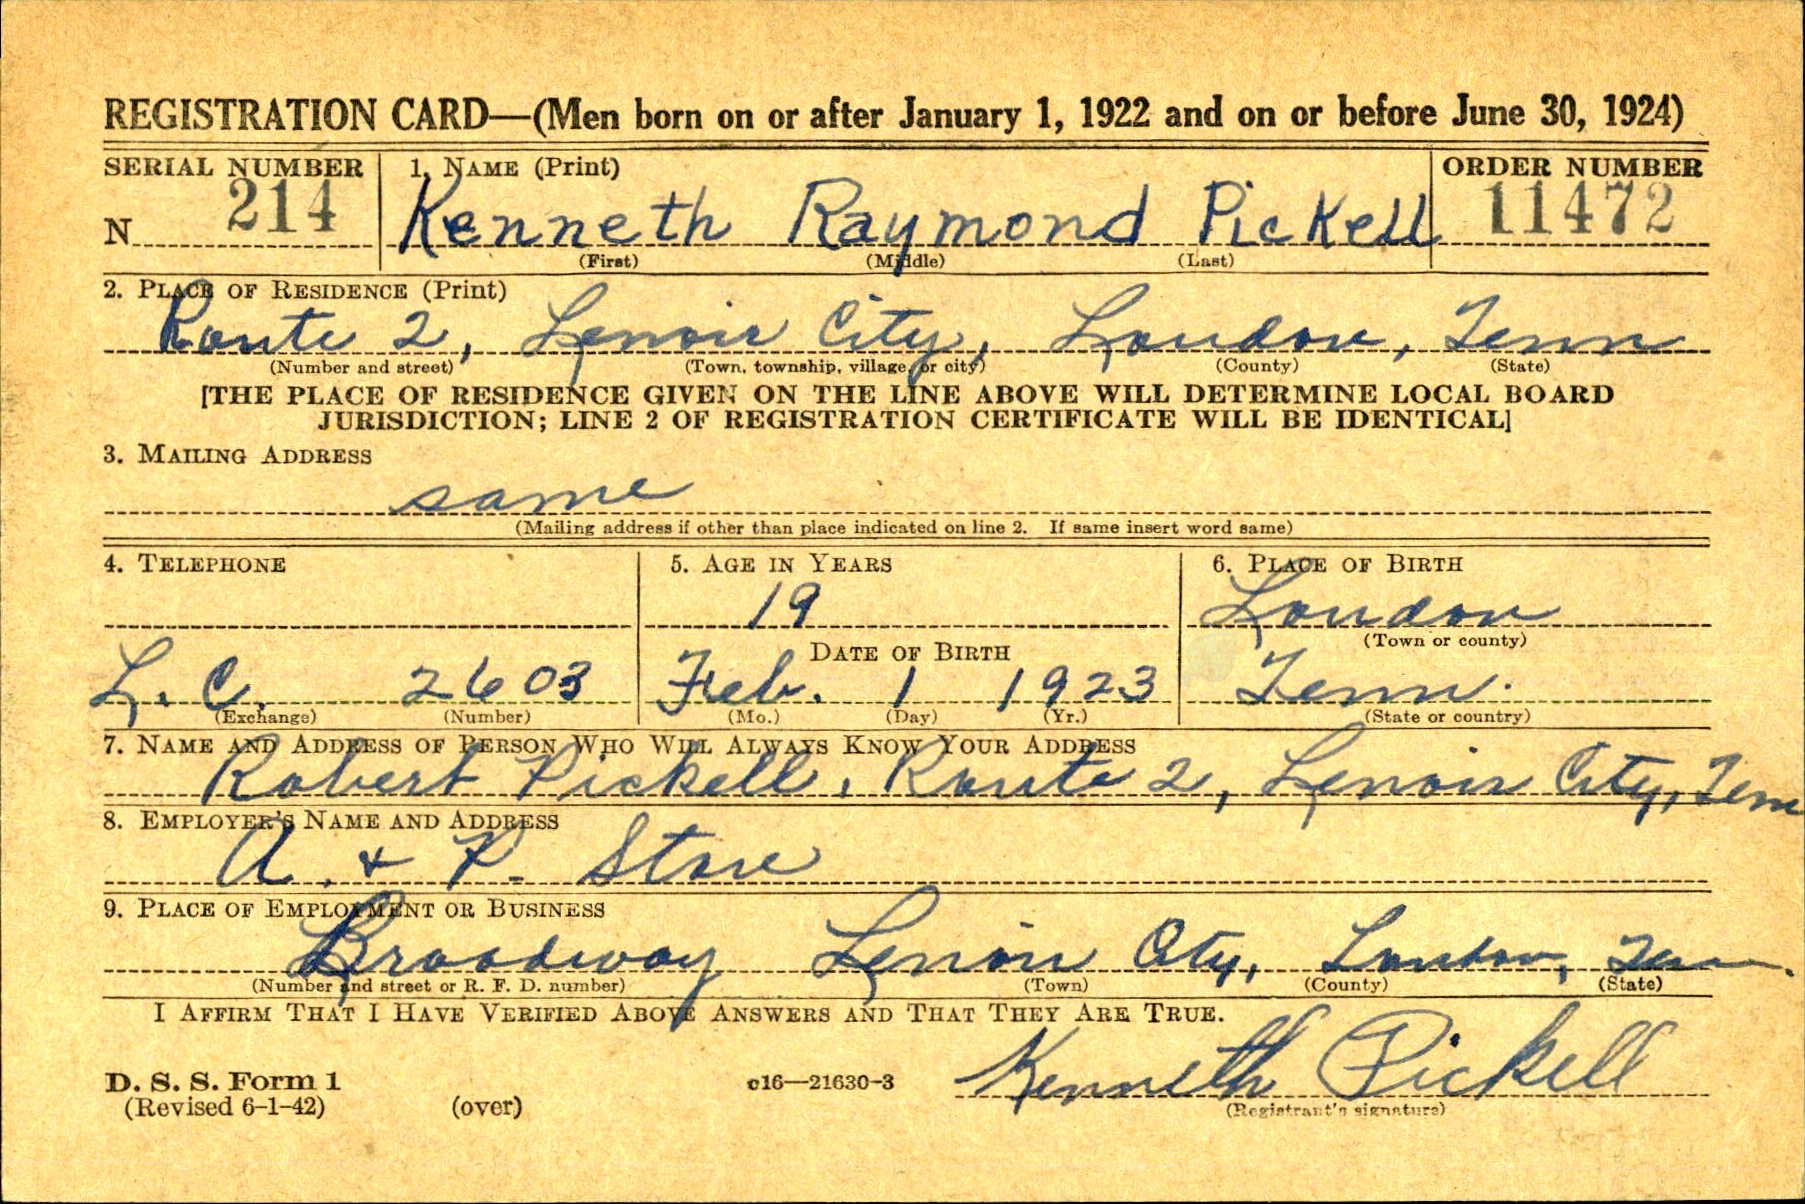 REGISTRATION CARD—(Men born on or after January 1, 1922 and on or before June 30, 1924)
SERIAL NUMBER 1. NAME (Print) ORDER NUMBER
N 214 Kenneth Raymond Pickell 11472
(First) (Middle) (Last)
2. PLACE OF RESIDENCE (Print)
Route 2, Lenoir City, Loudon, Tenn
(Number and street) (Town, township, village, or city) (County) (State)
[THE PLACE OF RESIDENCE GIVEN ON THE LINE ABOVE WILL DETERMINE LOCAL BOARD
JURISDICTION; LINE 2 OF REGISTRATION CERTIFICATE WILL BE IDENTICAL]
3. MAILING ADDRESS
same
(Mailing address if other than place indicated on line 2. If same insert word same)
4. TELEPHONE 5. AGE IN YEARS 6. PLACE OF BIRTH
19 Loudon
DATE OF BIRTH (Town or county)
L. C. 2603 Feb. 1 1923 Tenn.
(Exchange) (Number) (Mo.) (Day) (Yr.) (State or country)
7. NAME AND ADDRESS OF PERSON WHO WILL ALWAYS KNOW YOUR ADDRESS
Robert Pickell, Route 2, Lenoir City, Tenn
8. EMPLOYER'S NAME AND ADDRESS
A. & P. Store
9. PLACE OF EMPLOYMENT OR BUSINESS
Broadway Lenoir City, Loudon, Tenn.
(Number and street or R. F. D. number) (Town) (County) (State)
I AFFIRM THAT I HAVE VERIFIED ABOVE ANSWERS AND THAT THEY ARE TRUE.
D. S. S. Form 1 c16—21630-3 Kenneth Pickell
(Revised 6-1-42) (over) (Registrant's signature)